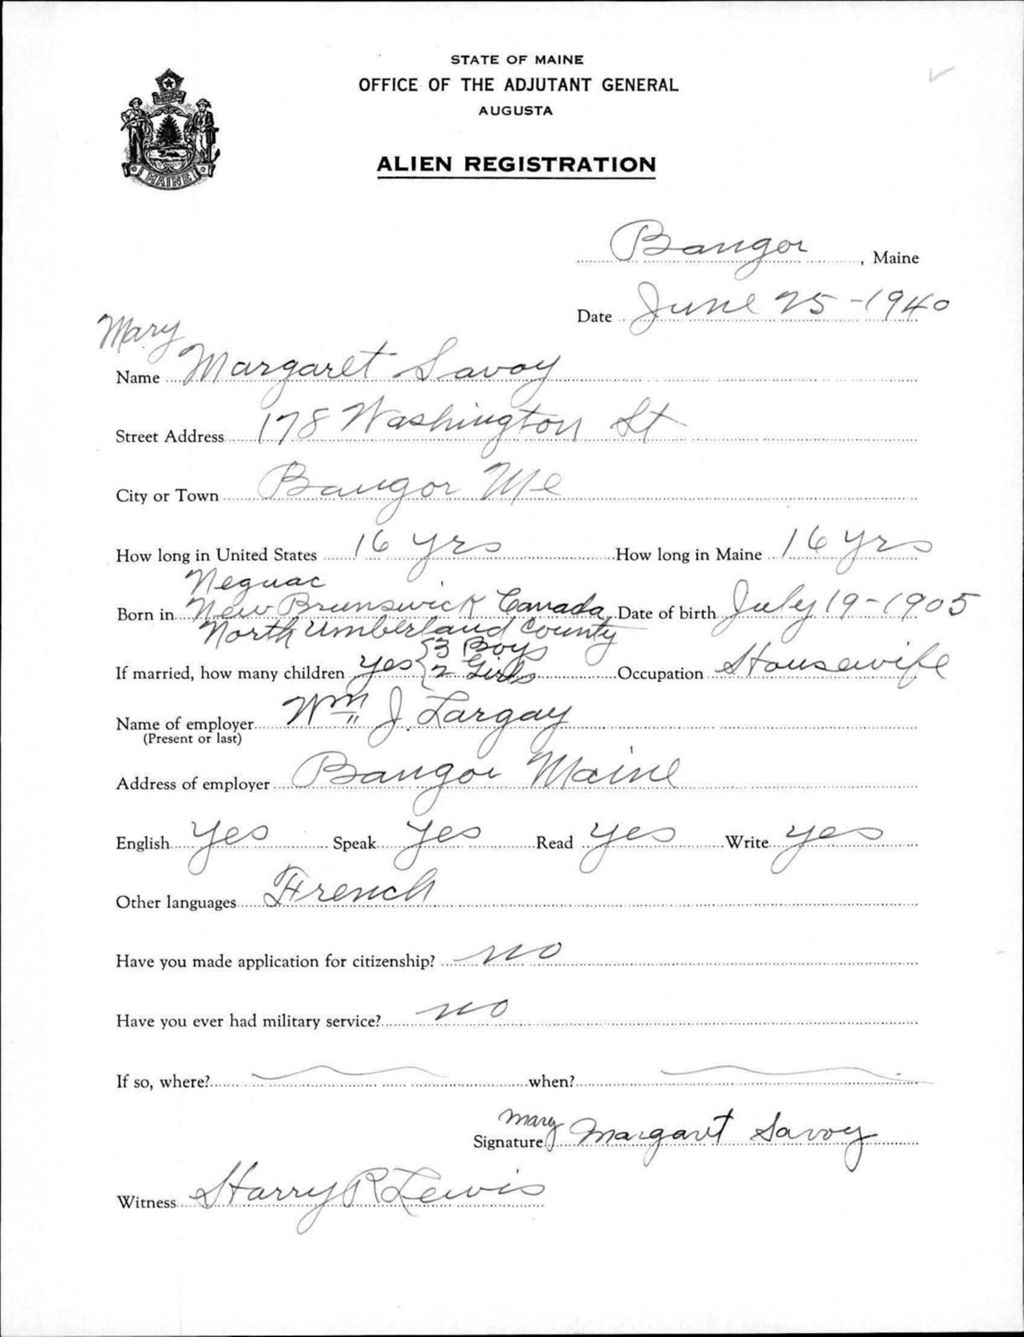 STATE OF MAINE
OFFICE OF THE ADJUTANT GENERAL
AUGUSTA
ALIEN REGISTRATION
MAINE
Bangor, Maine
Date June 25-1940
Mary
Name Margaret Savoy
Street Address 178 Washington St
City or Town Bangor Me
How long in United States 16 yrs How long in Maine 16 yrs
Neguac
Born in New Brunswick Canada Date of birth July 19-1905
North umberland County
3 Boys
If married, how many children yes 2 Girls Occupation Housewife
Name of employer Wm J. Largay
(Present or last)
Address of employer Bangor Maine
English yes Speak yes Read yes Write yes
Other languages French
Have you made application for citizenship? no
Have you ever had military service? no
If so, where? when?
Mary
Signature Margaret Savoy
Witness Harry R Lewis